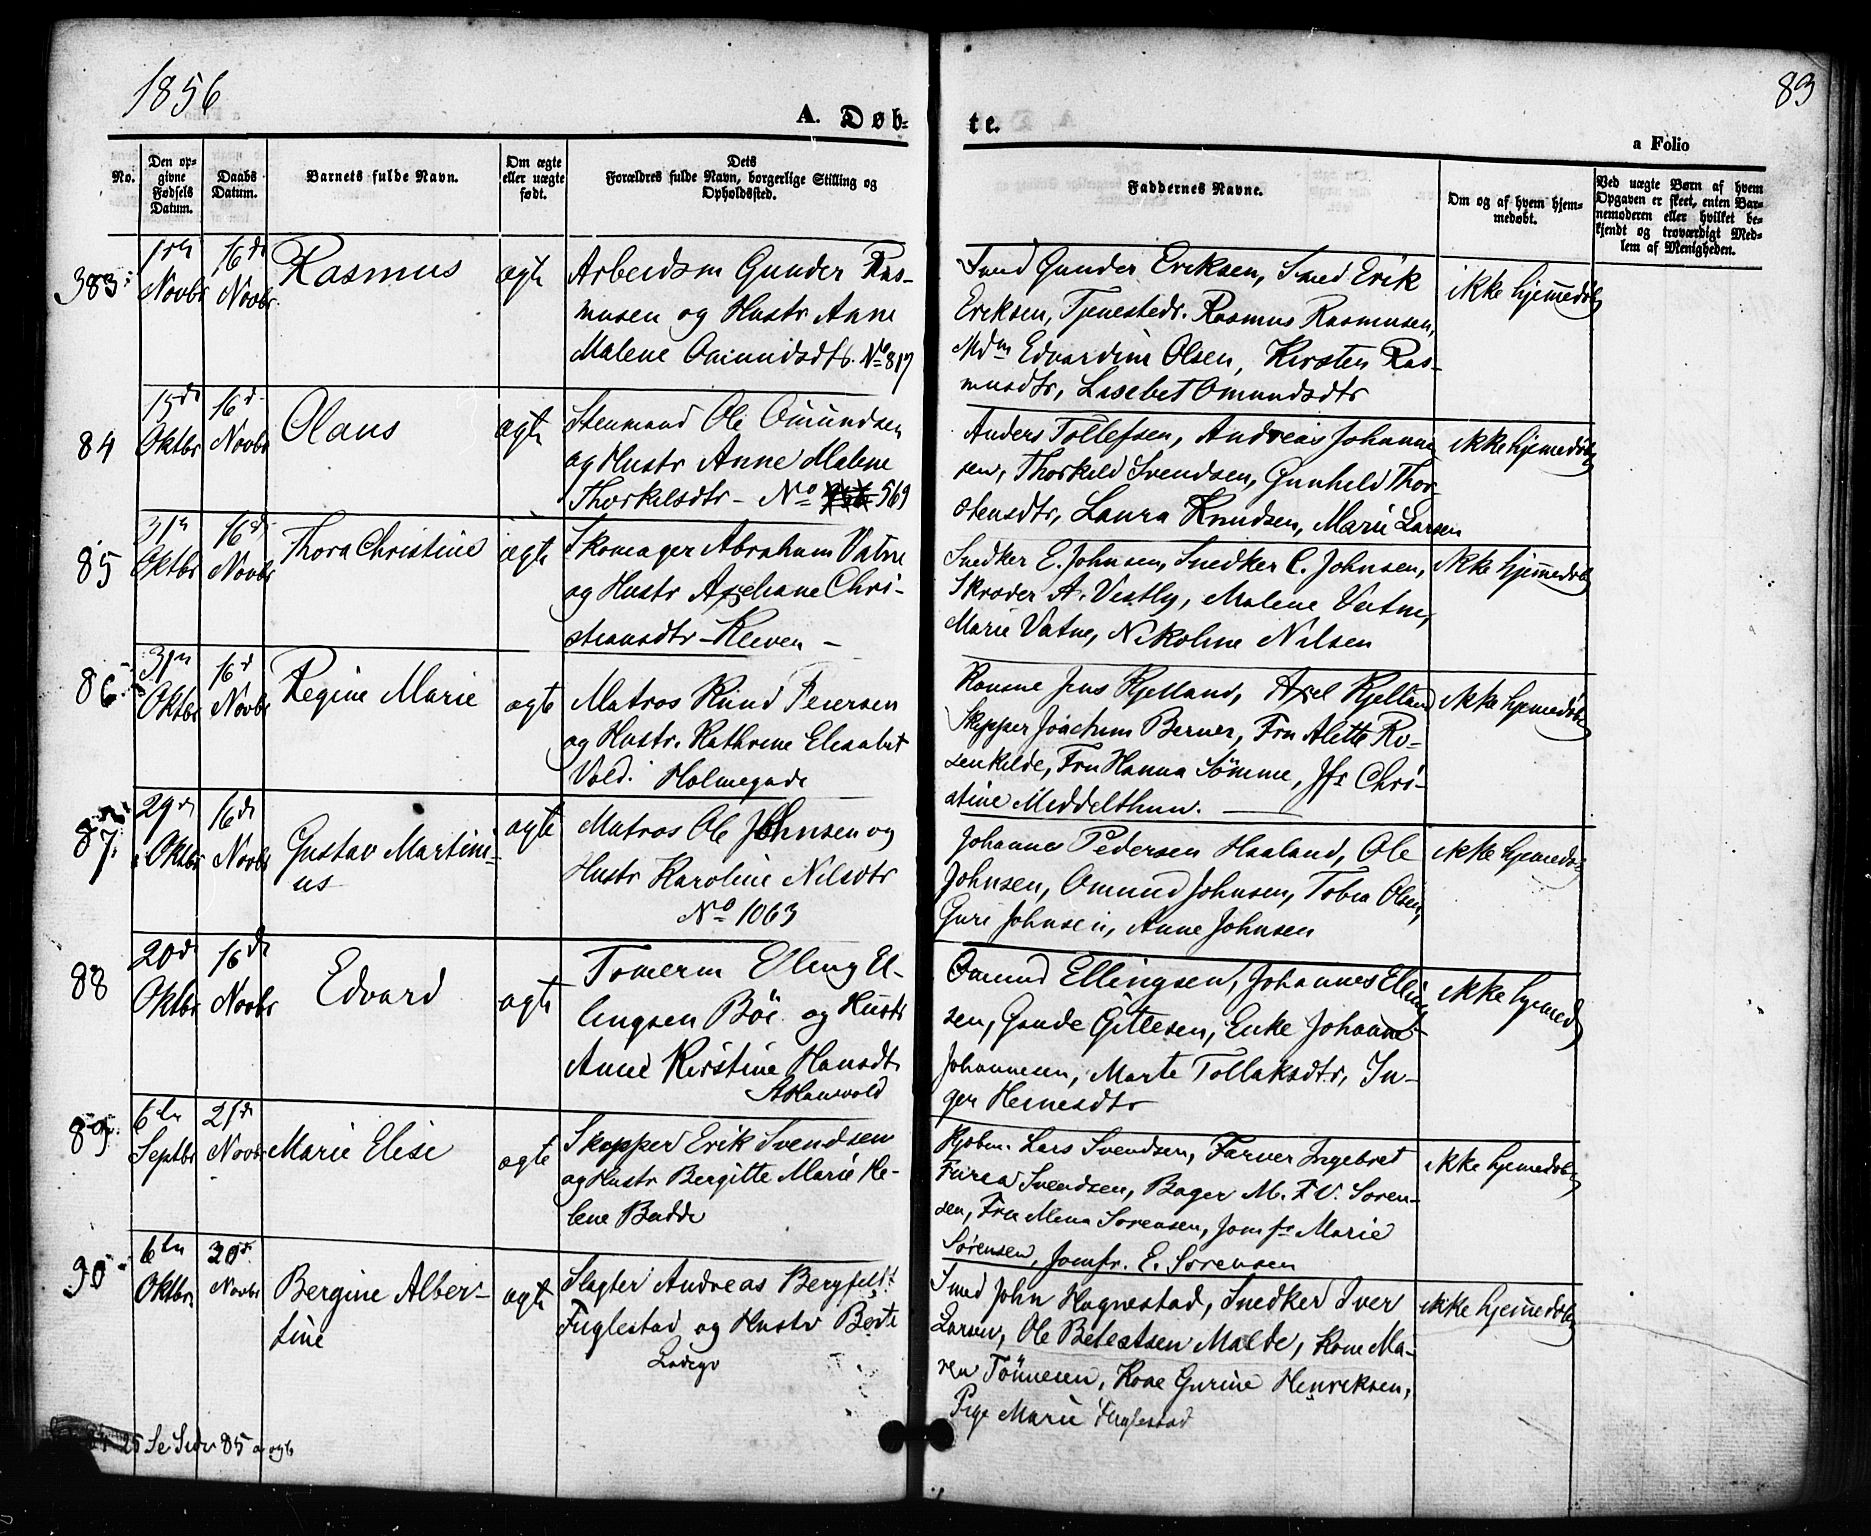 1856
83
A. Døb-
te.
a Folio
No.
Den op-
givne
Fødsels
Datum.
Daabs
Datum.
Barnets fulde Navn.
Om ægte
eller uægte
født.
Dets
Forældres fulde Navn, borgerlige Stilling og
Opholdssted.
Faddernes Navne.
Om og af hvem hjem-
medøbt.
Ved uægte Børn af hvem
Opgaven er skeet, enten Bar-
nemoderen eller hvilket be-
kjendt og troværdigt Med-
lem af Menigheden.
383
Novbr
16d
Novbr
Rasmus
ægte
Arbeidsm Gunder Ras-
musen og Hustr Anne
Malene Omundsdtr. No 817
Smed Gunder Eriksen, Smed Erik
Eriksen, Tjenestedr. Rasmus Rasmusen,
Mdm Edvardine Olsen, Kirsten Ras-
musdtr, Lisebet Omundsdtr
ikke hjemmedøbt
84
15d
Oktbr
16d
Novbr
Olaus
ægte
Stenmand Ole Omundsen
og Hustr Anne Malene
Thorkelsdtr - No 569
Anders Tollefsen, Andreas Johanne-
sen, Thorkild Svendsen, Gunhild Thor-
stensdtr, Laura Knudsen, Marie Larsen
ikke hjemedøbt
85
31
Oktbr
16d
Novbr
Thora Christine
ægte
Skomager Abraham Vatne
og Hustr Axeliane Chri-
stiansdtr - Kleven -
Snedker E. Johnsen, Snedker C. Johnsen,
Skræder A. Vestly, Malene Vatne,
Marie Vatne, Nikoline Nilsen
ikke hjemmedøbt
86
31
Oktbr
16d
Novbr
Regine Marie
ægte
Matros Knud Petersen
og Hustr. Kathrine Elisabet
Vold. Holmegade
Jens Kjelland, Axel Kjelland
Skipper Joachum Berner, Fru Alette Ro-
senkilde, Fru Hanna Sømme, Jfr Chri-
stine Middelthun.
ikke hjemedøbt
87
29d
Oktbr
16d
Novbr
Gustav Martini-
us
ægte
Matros Ole Johnsen og
Hustr Karoline Nilsdtr
No 1063
Johannes Pedersen Haaland, Ole
Johnsen, Omund Johnsen, Tobia Olsen,
Guri Johnsen, Anne Johnsen
ikke hjemedøbt
88
20d
Oktbr
16d
Novbr
Edvard
ægte
Tomerm Elling El-
lingsen Bøe og Hustr
Anne Kirstine Hansdtr
Omund Ellingsen, Johannes Elling-
sen, Gunde Gittesen, Enke Johanne
Johannesen, Marte Tollaksdtr, In-
ger
ikke hjemed
89
6te
Septbr
21d
Novbr
Marie Elise
ægte
Skipper Erik Svendsen
og Hustr Bergitte Marie He-
lene Budde
Kjøbm. Lars Svendsen, Farver Ingebret
Svendsen, Bager M. F. V. Soren-
sen, Fru Mena Sorensen, Jomfr Marie
Sørensen, Jomfr. E. Sorensen
ikke hjemedøbt
90
6te
Oktbr
20d
Novbr
Bergine Alber-
tine
ægte
Slagter Andreas Bergfeldt
Fuglestad og Hustr Berte
Ladegr
Smed John Hognestad, Snedker Iver
Larsen, Ole Malde, Kone Ma-
ren Tönnesen, Kone Gurine Henriksen,
Pige Marie Fuglestad
ikke hjemmedøbt
25 Se Side 85 a og b